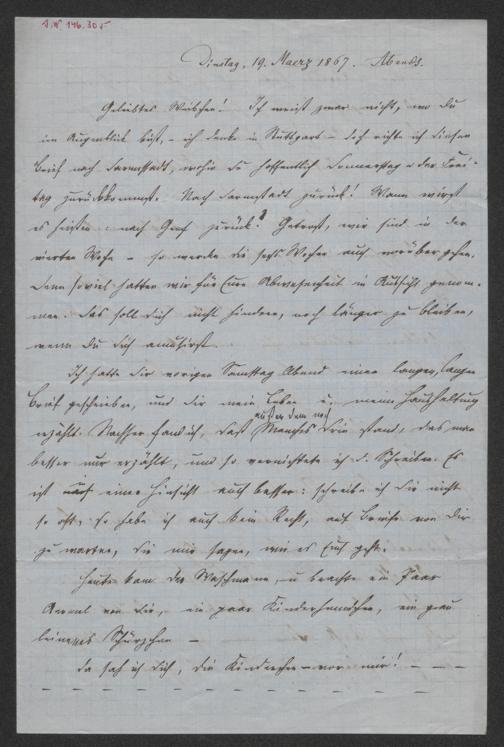 Dinstag, 19. Maerz 1867. Abends.
Geliebtes Weibchen! Ich weiß zwar nicht, wo Du
im Augenblick bist, – ich denke in Stuttgart – doch richte ich diesen
Brief nach Darmstadt, wohin Du hoffentlich Donnerstag oder Frei-
tag zurückkommst. Nach Darmstadt zurück! Wann wird
es heißen: nach Genf zurück? Getrost, wir sind in der
vierten Woche – so werden die sechs Wochen auch vorüber gehen.
Denn soviel hatten wir für Eure Abwesenheit in Aussicht genom-
men. Das soll Dich nicht hindern, noch länger zu bleiben,
wenn Du Dich amüsirst.
Ich hatte Dir vorigen Samstag Abend einen langen, langen
Brief geschrieben, und Dir mein Leben u. meine Haushaltung
erzählt. Nachher fand ich, daß Manches drin stand, das man
besser nur erzählt, und so vernichtete ich d. Schreiben. Es
ist auch einer Hinsicht auch besser: schreibe ich Dir nicht
so oft, so habe ich auch kein Recht, auf Briefe von Dir
zu warten, die mir sagen, wie es Euch geht.
Heute kam der Waschmann, u brachte ein Paar
Ärmel von Dir, ein paar Kinderhemdchen, ein grau
leinenes Schürzchen –
da sah ich Dich, die Kinderchen – vor mir! – – –